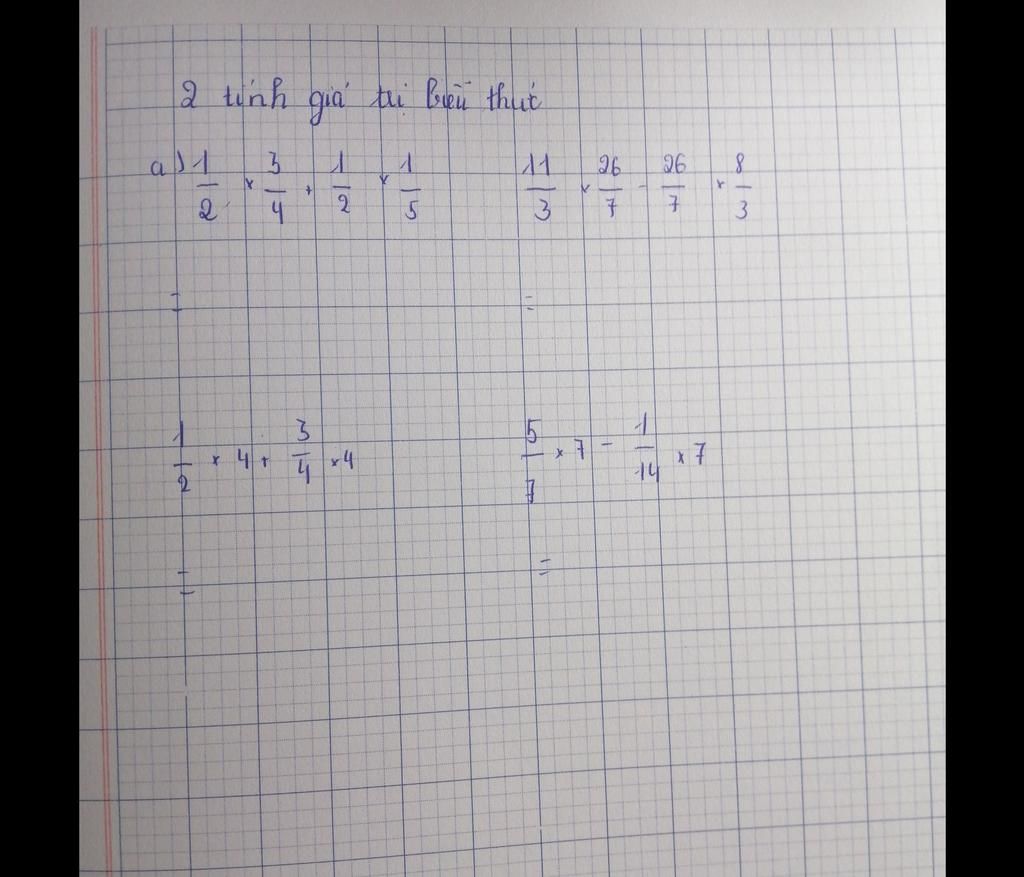 2 tính giá trị biểu thức
a) 1/2 × 3/4 + 1/2 × 1/5    11/3 × 26/7 - 26/7 × 8/3
=    =
1/2 × 4 + 3/4 × 4    5/7 × 7 - 1/14 × 7
=    =